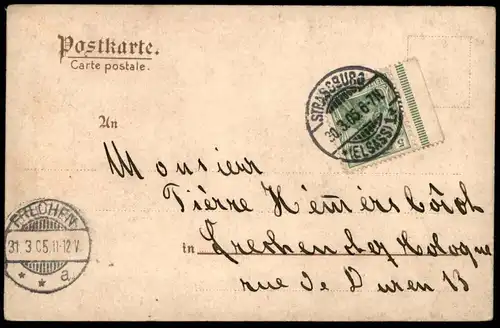 Postkarte.
Carte postale.
STRASSBURG
30.3.05.6-7
(ELSASS) 1.
5
An
Monsieur
Pierre Hemersbach
in Frechen bez Cologne
rue de Duren 13
FRECHEN
31 3 05.11-12 V.
* * a